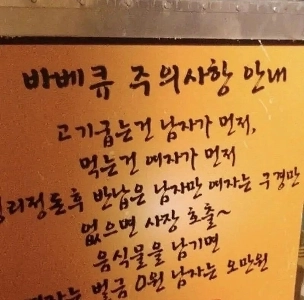 바베큐 주의사항 안내
고기굽는건 남자가 먼저,
먹는건 여자가 먼저
반납은 남자만 여자는 구경만
없으면 사장 호출~
음식물을 남기면
벌금 0원 남자는 오만원